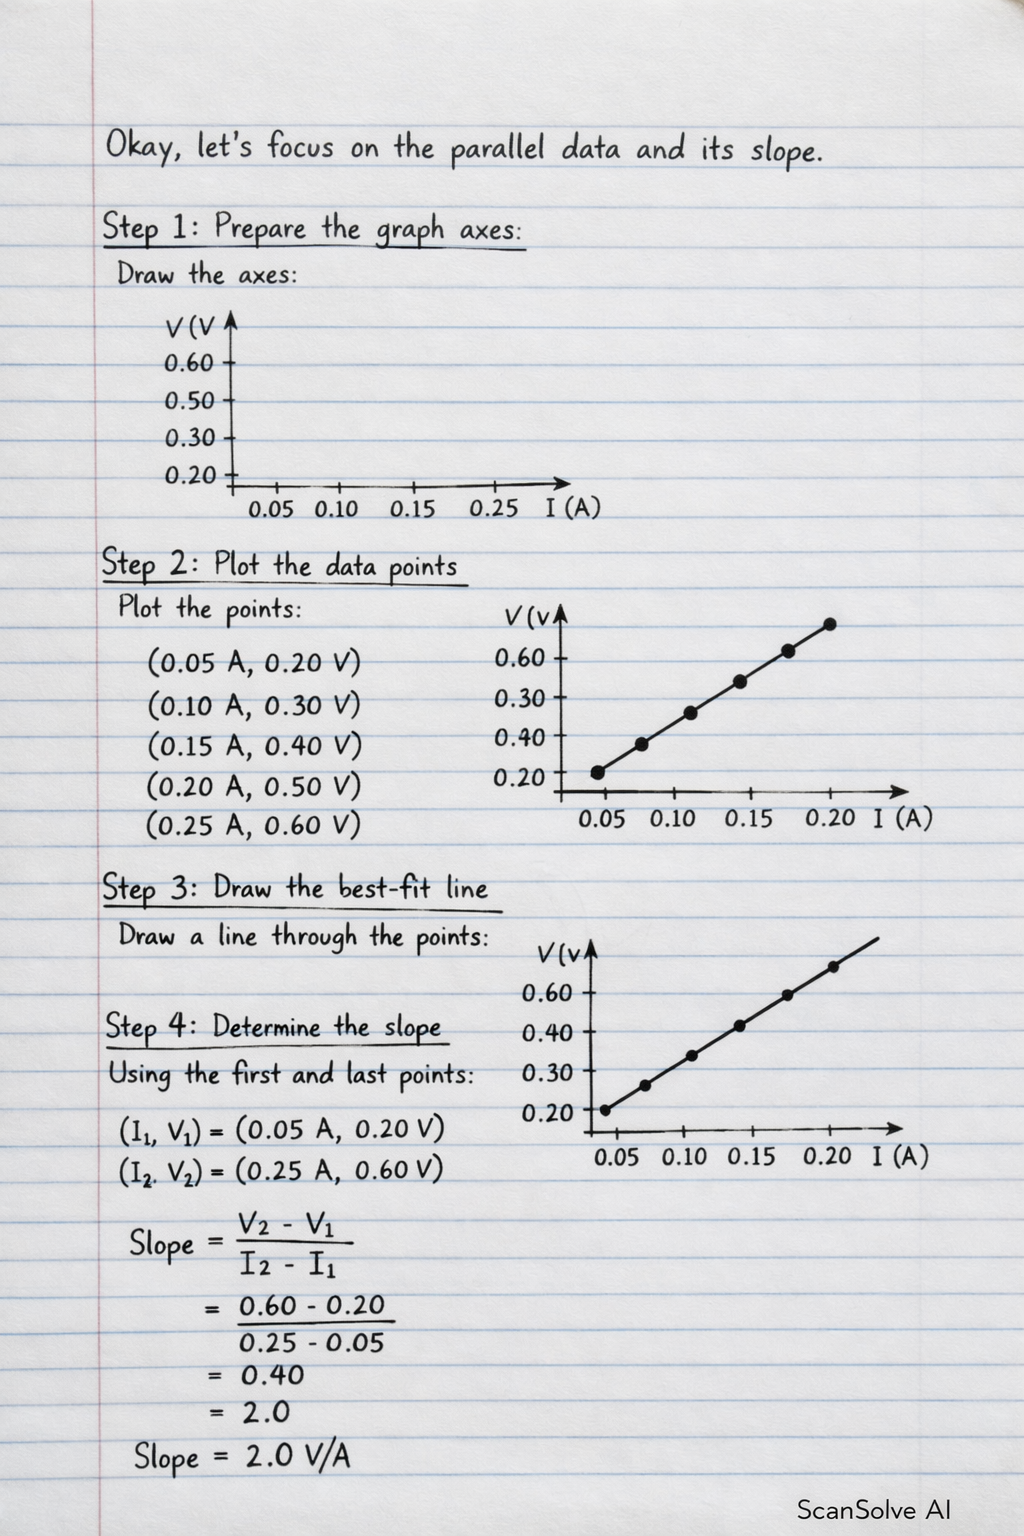 Okay, let's focus on the parallel data and its slope.
Step 1: Prepare the graph axes:
Draw the axes:
V (V
0.60
0.50
0.30
0.20
0.05 0.10 0.15 0.25 I (A)
Step 2: Plot the data points
Plot the points:
(0.05 A, 0.20 V)
(0.10 A, 0.30 V)
(0.15 A, 0.40 V)
(0.20 A, 0.50 V)
(0.25 A, 0.60 V)
V (v
0.60
0.30
0.40
0.20
0.05 0.10 0.15 0.20 I (A)
Step 3: Draw the best-fit line
Draw a line through the points:
V (v
0.60
0.40
0.30
0.20
0.05 0.10 0.15 0.20 I (A)
Step 4: Determine the slope
Using the first and last points:
(I₁, V₁) = (0.05 A, 0.20 V)
(I₂. V₂) = (0.25 A, 0.60 V)
Slope = V₂ - V₁
I₂ - I₁
= 0.60 - 0.20
0.25 - 0.05
= 0.40
= 2.0
Slope = 2.0 V/A
ScanSolve AI